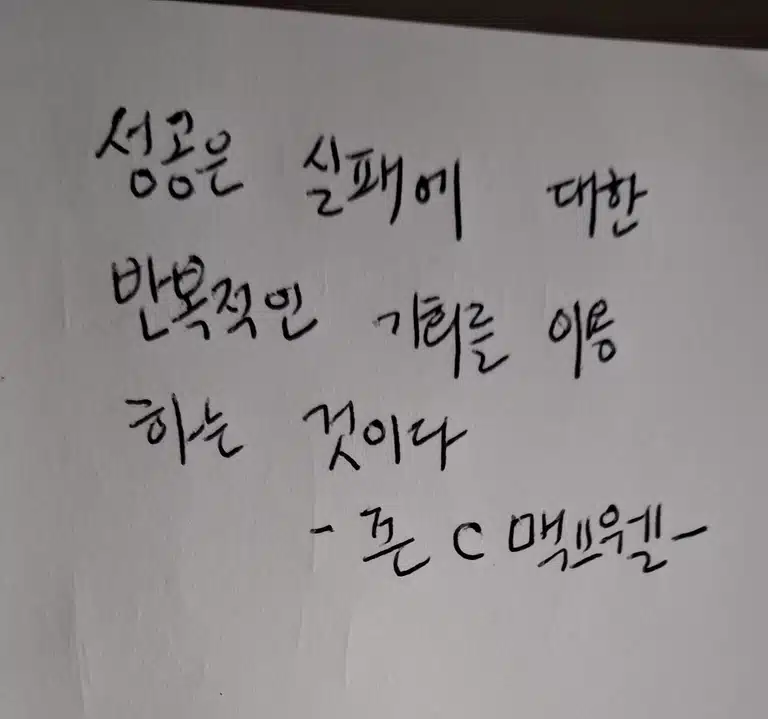 성공은 실패에 대한
반복적인 기회를 이용
하는 것이다
- 존 C 맥스웰 -